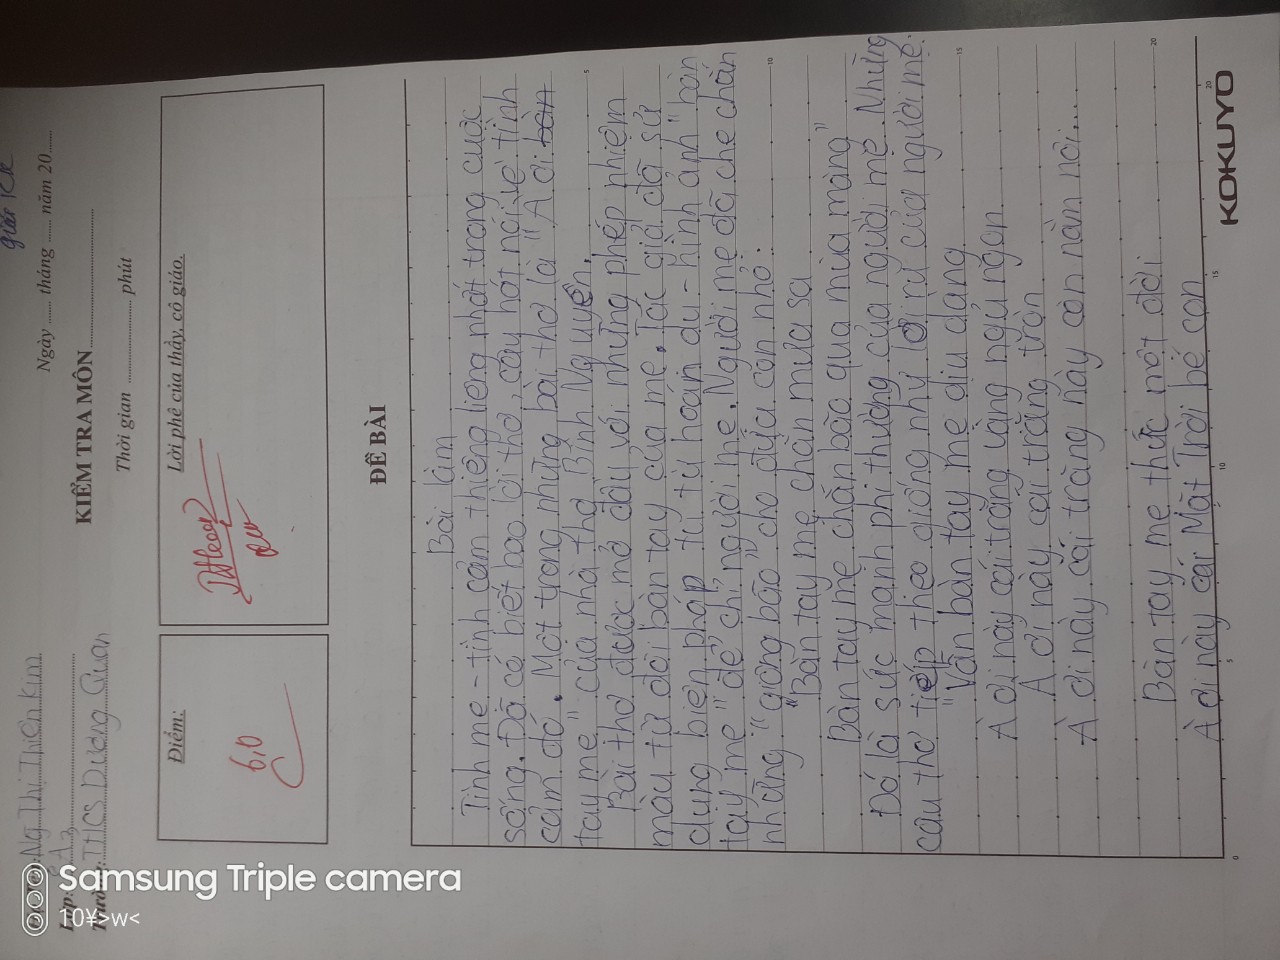 giữa kì
Ngày ...... tháng ...... năm 20......
Ng Thị Thiên Kim
Lớp: A3
Trường: THCS Dương Quan
KIỂM TRA MÔN
Thời gian ............... phút
Điểm:
6,0
Lời phê của thầy, cô giáo.
ĐỀ BÀI
Bài làm
Tình mẹ - tình cảm thiêng liêng nhất trong cuộc
sống. Đã có biết bao lời thơ, câu hát nói về tình
cảm đó. Một trong những bài thơ là "À ơi bàn
tay mẹ" của nhà thơ Bình Nguyên.
Bài thơ được mở đầu với những phép nhiệm
màu từ đôi bàn tay của mẹ. Tác giả đã sử
dụng biện pháp tu từ hoán dụ - hình ảnh "bàn
tay mẹ" để chỉ người mẹ. Người mẹ đã che chắn
những "giông bão" cho đứa con nhỏ:
"Bàn tay mẹ chắn mưa sa
Bàn tay mẹ chặn bão qua mùa màng"
Đó là sức mạnh phi thường của người mẹ. Những
câu thơ tiếp theo giống như lời ru của người mẹ.
"Vẫn bàn tay mẹ dịu dàng
À ơi này cái trăng vàng ngủ ngon
À ơi này cái trăng tròn
À ơi này cái trăng này còn nằm nôi...
Bàn tay mẹ thức một đời
À ơi này cái Mặt Trời bé con
5
10
15
0
5
10
15
20
20
KOKUYO
Samsung Triple camera
10¥>w<